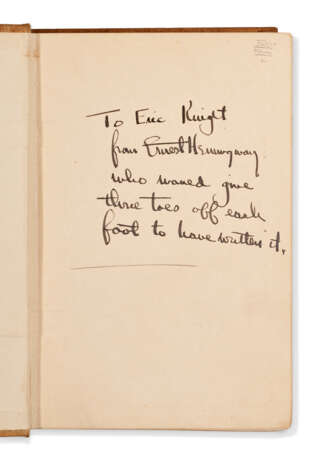 To Eric Knight
from Ernest Hemingway
who woued give
three toes off each
foot to have written it.